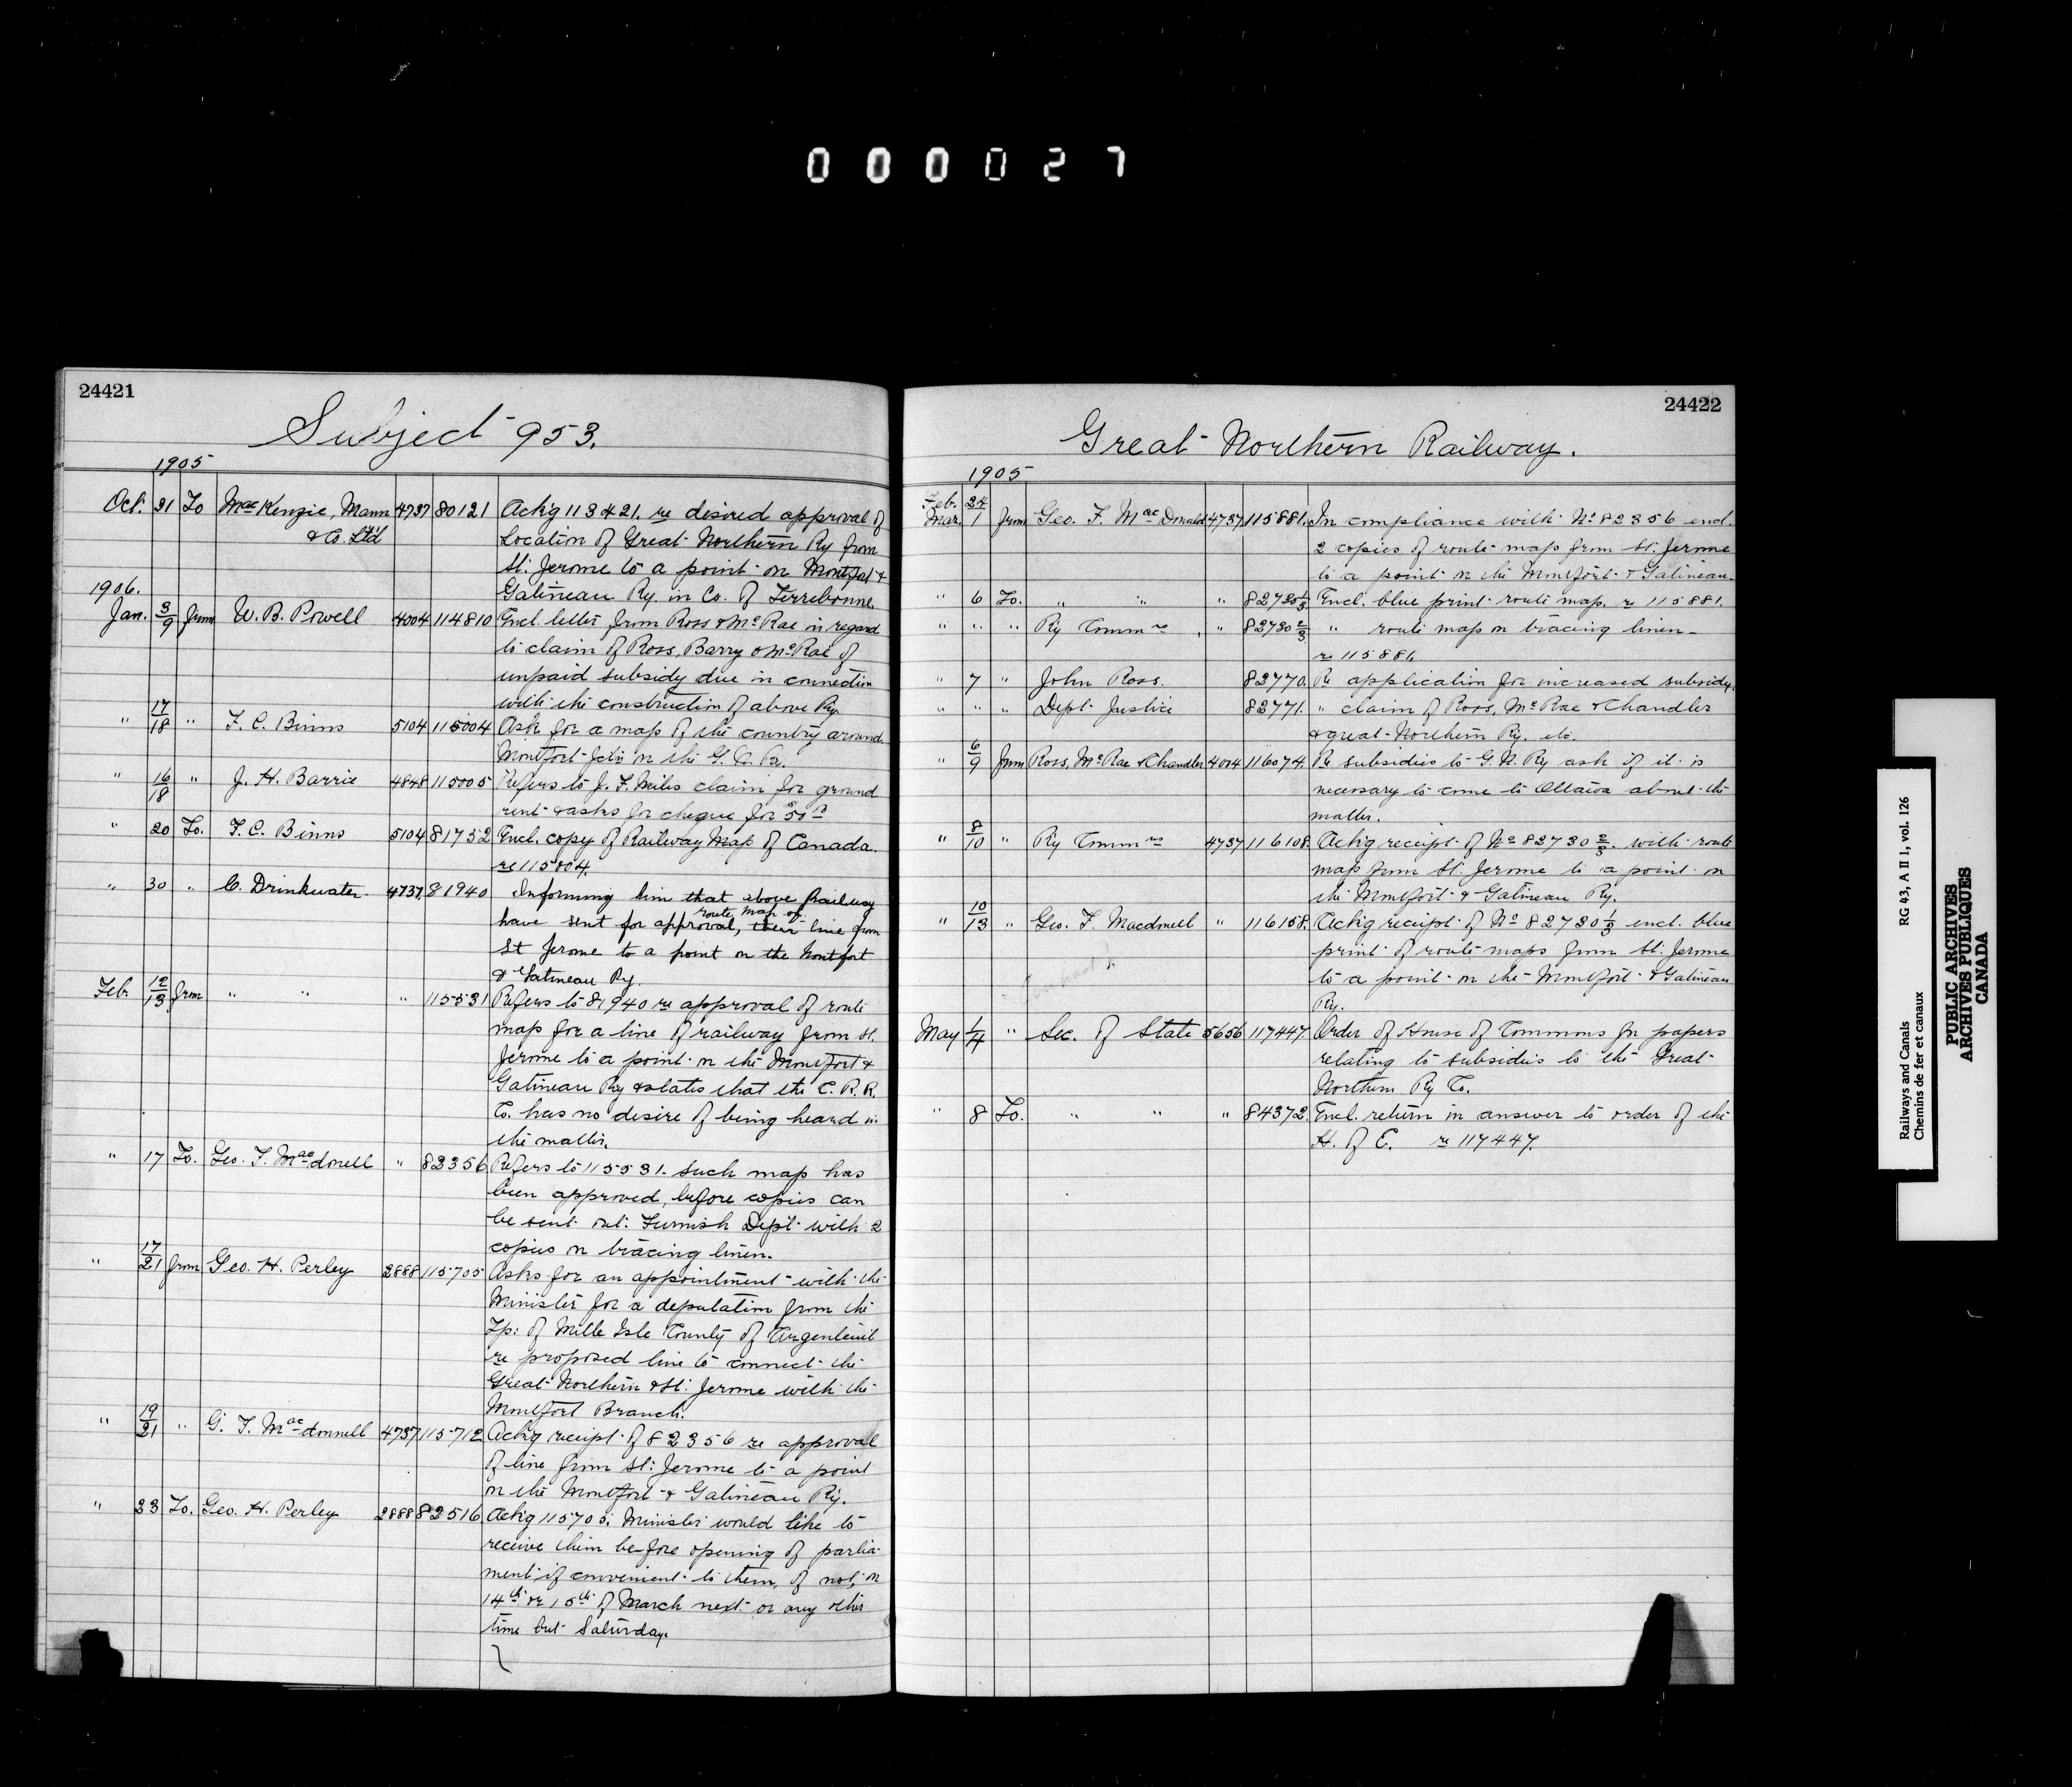 000027
24421
Subject 953.
1905
Oct. 31 To MacKenzie, Mann 4737 80121 Ackg 113421. re desired approval of
& Co. Ltd Location of Great Northern Ry from
St. Jerome to a point on Montfort &
Gatineau Ry. in Co. of Terrebonne.
1906.
Jan. 3/9 from W. B. Powell 4004 114810 Encl. letter from Ross & McRae in regard
to claim of Ross, Barry & McRae of
unpaid subsidy due in connection
with the construction of above Ry.
" 17/18 " F. C. Binns 5104 115004 Ask for a map of the country around
Montfort Jctn on the G. N. Ry.
" 16/18 " J. H. Barrie 4848 115005 Refers to J. F. Miles claim for ground
rent & asks for cheque for
" 20 To. F. C. Binns 5104 81752 Encl. copy of Railway Map of Canada.
re 115004.
" 30 " C. Drinkwater 4737. 81940 Informing him that above Railway
have sent for approval, route map of their line from
St Jerome to a point on the Montfort
& Gatineau Ry.
Feb. 12/13 from " " " 115531 Refers to 81940 re approval of route
map for a line of railway from St.
Jerome to a point on the Montfort &
Gatineau Ry & states that the C. P. R.
Co. has no desire of being heard in
the matter.
" 17 To. Geo. F. Macdonell " 82356 Refers to 115531. such map has
been approved, before copies can
be sent out. Furnish Dept. with 2
copies on tracing linen.
" 17/21 from Geo. H. Perley 2888 115705 Asks for an appointment with the
Minister for a deputation from the
Tp. of Mille Isle County of Argenteuil
re proposed line to connect the
Great Northern & St. Jerome with the
Montfort Branch.
" 19/21 " G. F. Macdonnell 4737 115712 Ackg receipt of 82356 re approval
of line from St. Jerome to a point
on the Montfort & Gatineau Ry.
" 23 To. Geo. H. Perley 2888 82516 Ackg 115705. Minister would like to
receive them before opening of parlia-
ment, if convenient to them, if not, on
14th or 15th of March next or any other
time but Saturday.
24422
Great Northern Railway.
1905
Feb. 24
Mar. 1 from Geo. F. MacDonald 4737 115881. In compliance with No 82356 encl.
2 copies of route map from St. Jerome
to a point on the Montfort & Gatineau.
" 6 To. " " " 82730 1/3 Encl. blue print route map. re 115881.
" " " Ry Commrs " 82730 2/3 " route map on tracing linen
re 115881.
" 7 " John Ross. 82770. Re application for increased subsidy.
" " " Dept. Justice 82771. " claim of Ross, McRae & Chandler
& great Northern Ry. etc.
" 6/9 from Ross, McRae & Chandler 4004 116074. Re subsidies to G. N. Ry ask if it is
necessary to come to Ottawa about the
matter.
" 8/10 " Ry Commrs 4737 116108. Ackg receipt of No 82730 2/3. with route
map from St. Jerome to a point on
the Montfort & Gatineau Ry.
" 10/13 " Geo. F. Macdonell " 116158. Ackg receipt of No 82730 1/3 encl. blue
print of route maps from St. Jerome
to a point on the Montfort & Gatineau
Ry.
May 1/4 " Sec. of State 5656 117447. Order of House of Commons for papers
relating to subsidies to the Great
Northern Ry Co.
" 8 To. " " " 84372. Encl. return in answer to order of the
H. of C. re 117447.
Railways and Canals RG 43, A II 1, vol. 126
Chemins de fer et canaux
PUBLIC ARCHIVES
ARCHIVES PUBLIQUES
CANADA